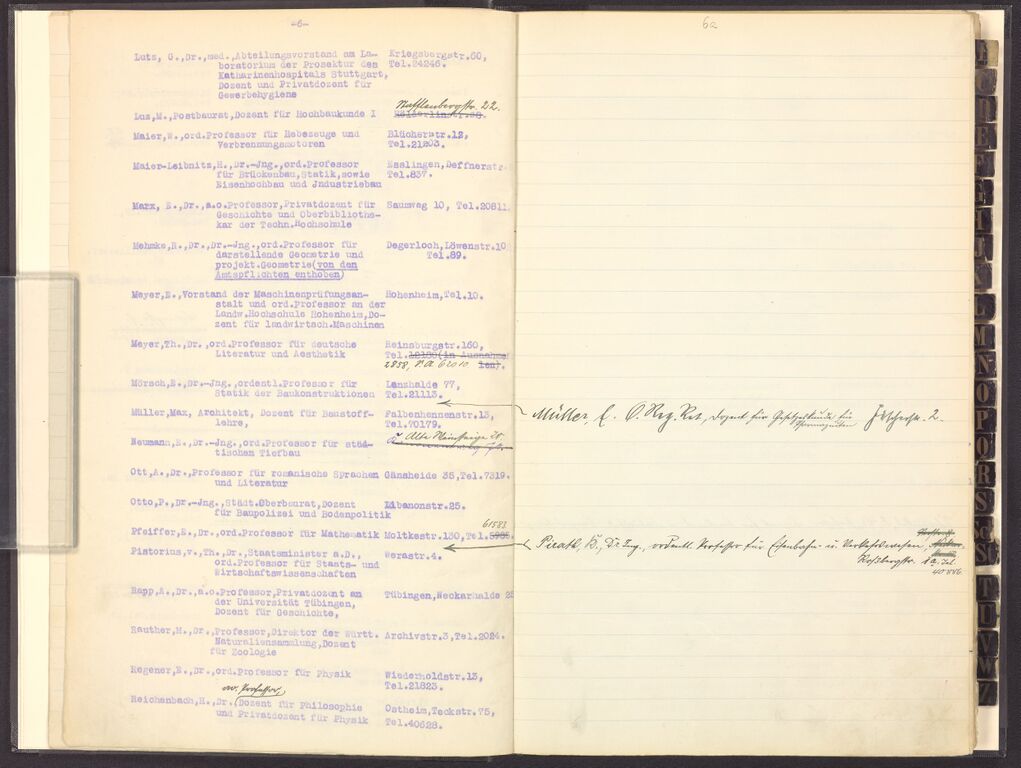 -6-
Lutz, G.,Dr.,med.,Abteilungsvorstand am La- Kriegsbergstr.60,
boratorium der Prosektur des Tel.24246.
Katharinenhospitals Stuttgart,
Dozent und Privatdozent für
Gewerbehygiene
22.
Luz,M.,Postbaurat,Dozent für Hochbaukunde I
Maier,W.,ord.Professor für Hebezeuge und Blücherstr.12,
Verbrennungsmotoren Tel.21203.
Maier-Leibnitz,H.,Dr.-Jng.,ord.Professor Esslingen,Deffnerstr.
für Brückenbau,Statik,sowie Tel.837.
Eisenhochbau und Jndustriebau
Marx, E.,Dr.,a.o.Professor,Privatdozent für Saumweg 10, Tel.20811.
Geschichte und Oberbibliothe-
kar der Techn.Hochschule
Mehmke,R.,Dr.,Dr.-Jng.,ord.Professor für Degerloch,Löwenstr.10
darstellende Geometrie und Tel.89.
projekt.Geometrie(von den
Amtspflichten enthoben)
Meyer,E.,Vorstand der Maschinenprüfungsan- Hohenheim,Tel.10.
stalt und ord.Professor an der
Landw.Hochschule Hohenheim,Do-
zent für landwirtsch.Maschinen
Meyer,Th.,Dr.,ord.Professor für deutsche Reinsburgstr.160,
Literatur und Aesthetik Tel. (in Ausnahme
2858, 62010 len).
Mörsch,E.,Dr.-Jng.,ordentl.Professor für Lenzhalde 77,
Statik der Baukonstruktionen Tel.21113.
Müller,Max, Architekt, Dozent für Baustoff- Falbenhennenstr.13,
lehre, Tel.70179.
Alte Weinsteige
Neumann,E.,Dr.-Jng.,ord.Professor für städ-
tischen Tiefbau
Ott,A.,Dr.,Professor für romanische Sprachen Gänsheide 35,Tel.7319.
und Literatur
Otto,P.,Dr.-Jng.,Städt.Oberbaurat,Dozent Libanonstr.25.
für Baupolizei und Bodenpolitik
61583
Pfeiffer,E.,Dr.,ord.Professor für Mathematik Moltkestr.130,Tel.
Pistorius,v.,Th.,Dr.,Staatsminister a.D., Werastr.4.
ord.Professor für Staats- und
Wirtschaftswissenschaften
Rapp,A.,Dr.,a.o.Professor,Privatdozent an Tübingen,Neckarhalde
der Universität Tübingen,
Dozent für Geschichte,
Rauther,M.,Dr.,Professor,Direktor der Württ. Archivstr.3,Tel.2024.
Naturaliensammlung,Dozent
für Zoologie
Regener,E.,Dr.,ord.Professor für Physik Wiederholdstr.13,
Tel.21823.
ao. Professor,
Reichenbach,H.,Dr.(Dozent für Philosophie Ostheim,Teckstr.75,
und Privatdozent für Physik Tel.40628.
6a
Müller, E. O. Reg. Rat, Dozent für Gesetzeskunde für 2.
Pirath, K., Dr. Ing., ordentl. Professor für Eisenbahn- u. Verkehrswesen,
Roßbergstr. Tel.
40886
E
F
G
L
M
N
O
P
R
S
S
T
U
V
W
Z